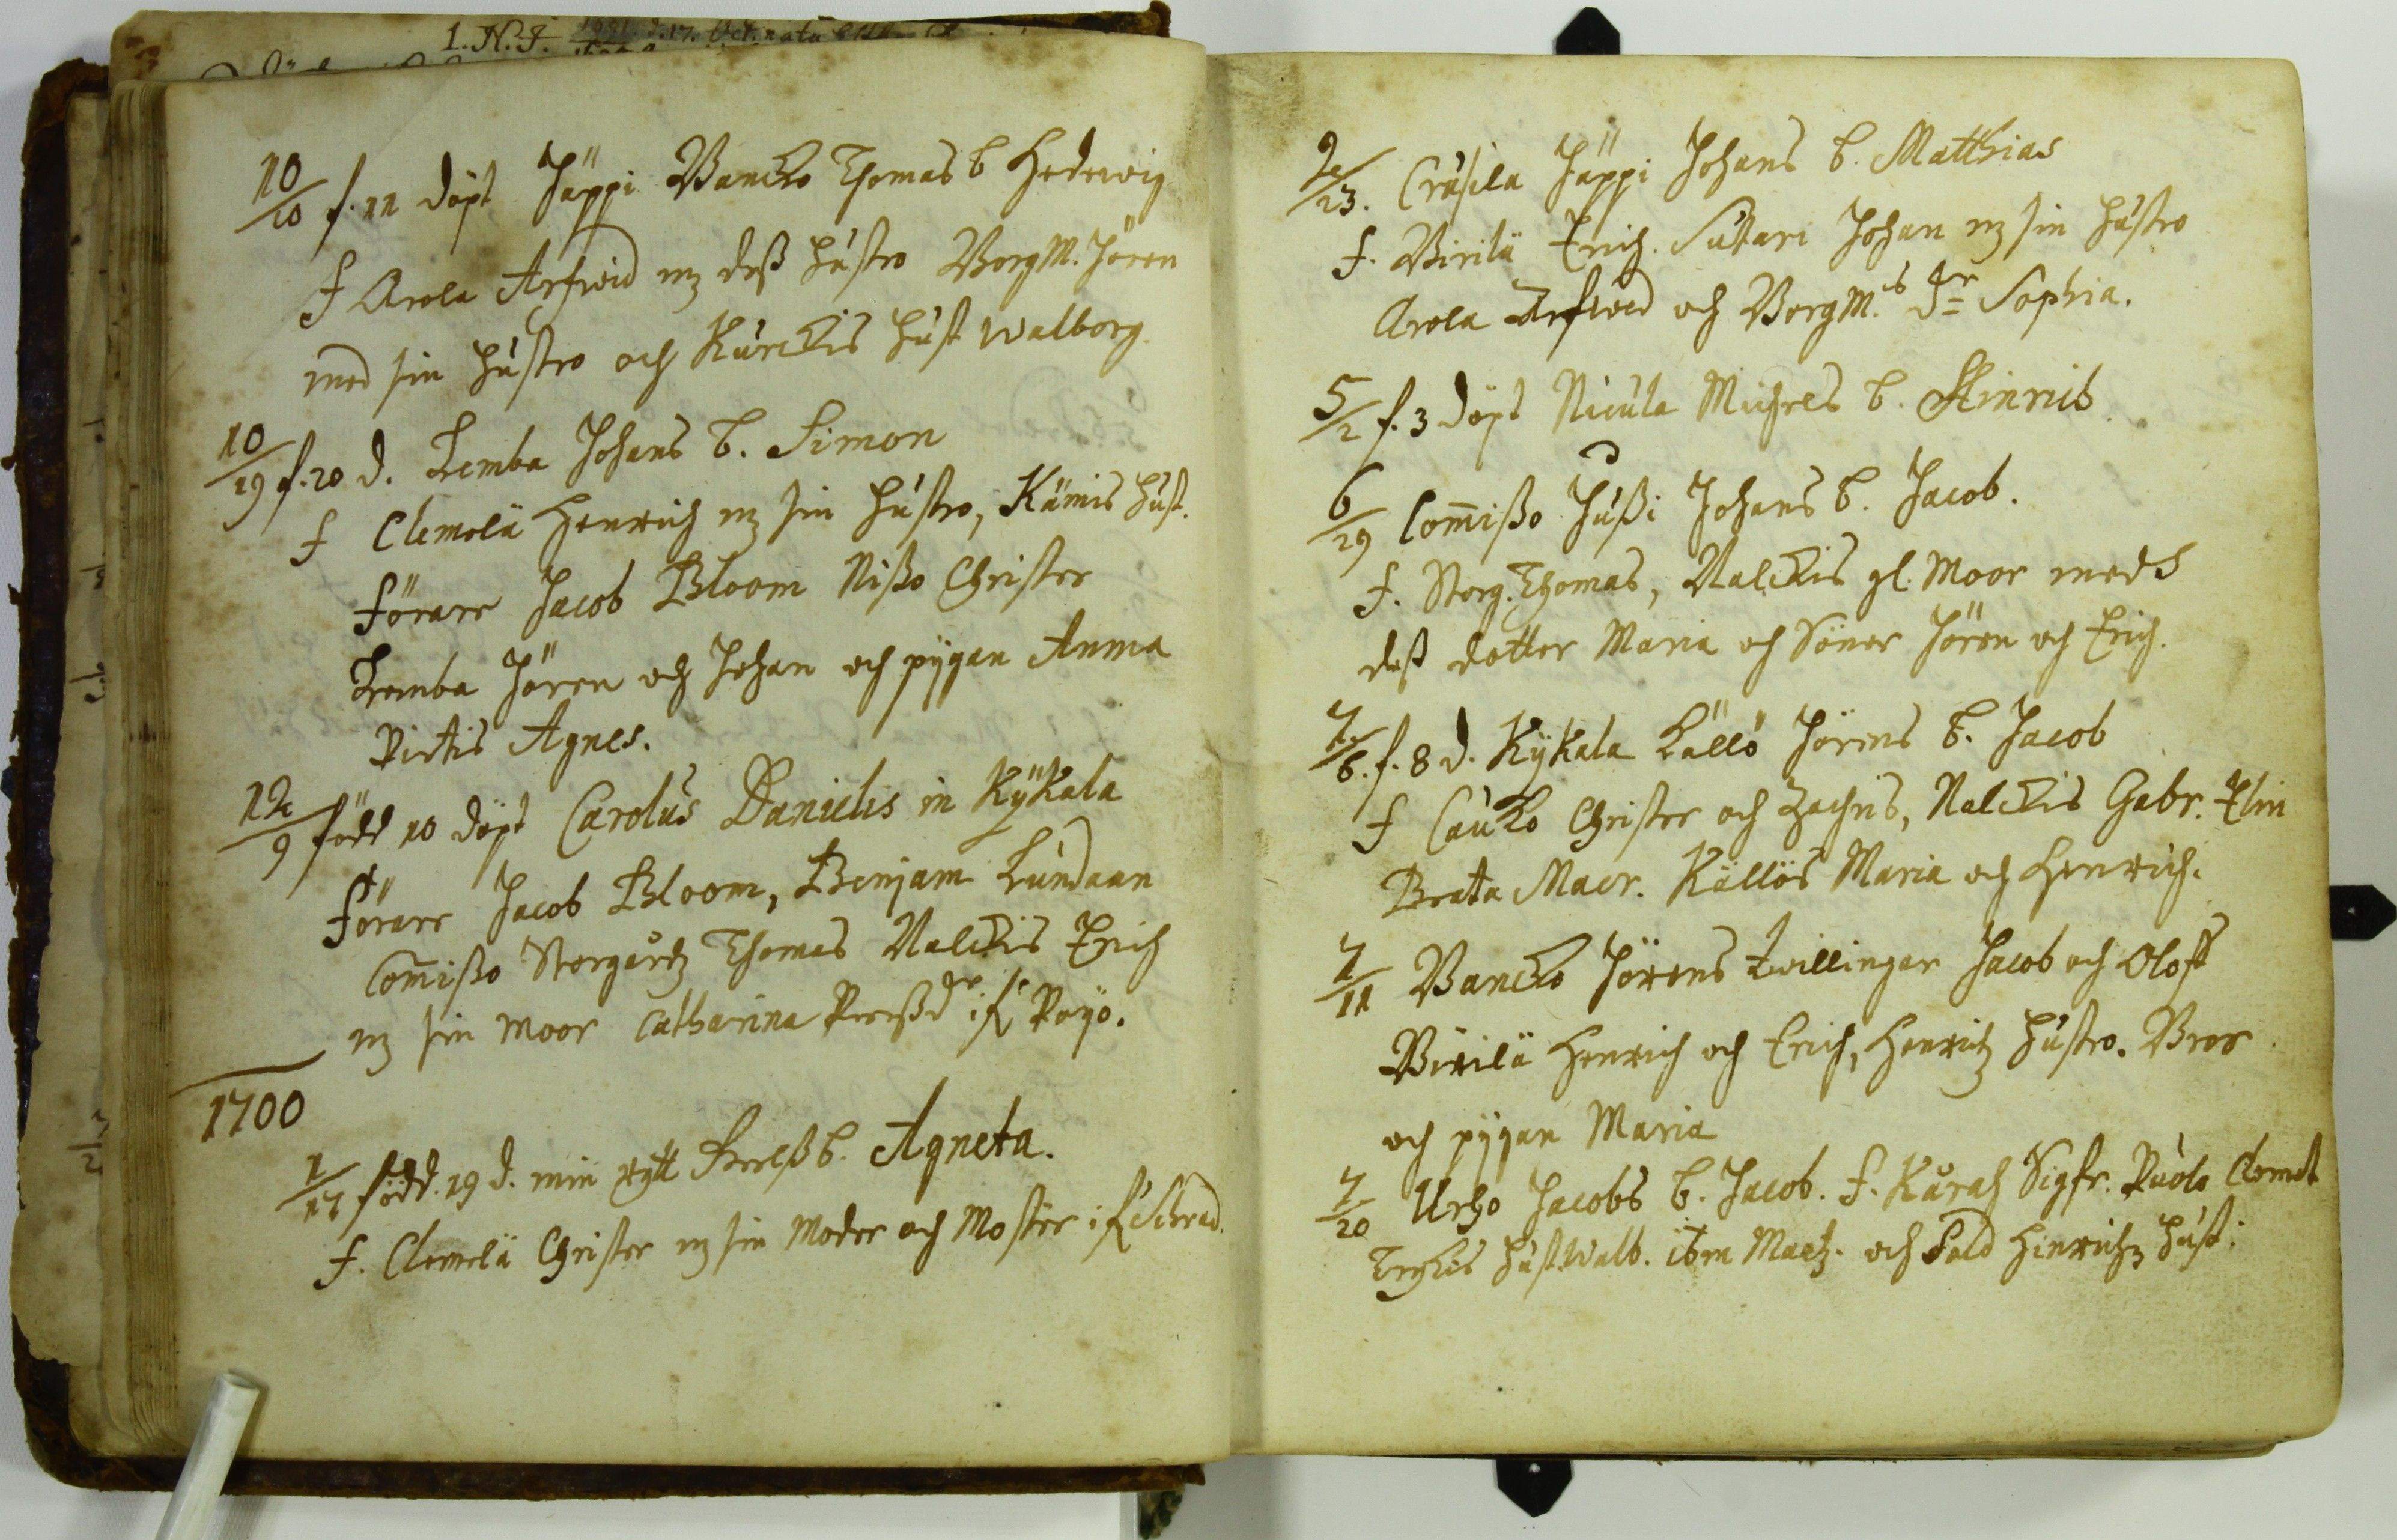 1. N. J.
10/10 f. 11 döpt Jäppi Wancko Thomas b Hedewig
f Arola Arfwid mz deß hústro Borgm. Jören
med sin hústro och Kúrckis húst Walborg.
10/19 f. 20 d. Lemba Johans b. Simon
f Clemolä Henrich mz sin hústro, Kämis húst.
förare Jacob Bloom Nißo Christer
Lemba Jören och Johan och pÿgan Anna
Pirtis Agnes.
12/9 född 10 döpt Carolús Danielis in Kÿkala
förare Jacob Bloom, Benjam Lúndaan
Com̅ißo Storgårdz Thomas Nalckis Erich
mz sin moor Catharina Pÿo.
1700
1/17 född. 19 d. min b. Agneta.
f. Clemelä Christer mz sin Moder och Moster
2/23. Crúsila Jäppi Johans b. Matthias
f. Wirilä Erich. Sútari Johan mz sin hústro
Arola Arfwed och Borgm.s dr Sophia.
5/2 f. 3 döpt Nicúla Michels b. Hinrich
6/29 Com̅ißo Júßi Johans b. Jacob.
f. Storg. Thomas, Nalckis gl. moor meds
deß dotter Maria och Söner Jören och Erich.
7/6. f. 8 d. Kÿkala Källö Jörens b. Jacob
f Caúko Christer och Zachris, Nalckis Gabr. Elin
Brata Maer. Källös Maria och Henrich.
7/11 Wancko Jörens twillingar Jacob och Oloff
Wirilä Henrich och Erich, Henrichz hústro.
och pÿgan Maria
7/20 Urho Jacobs b. Jacob. f. Kúrah Sigfr. Púolo Clemet
húst. Walb. ibm Matz. och Sold Hinrichz húst: